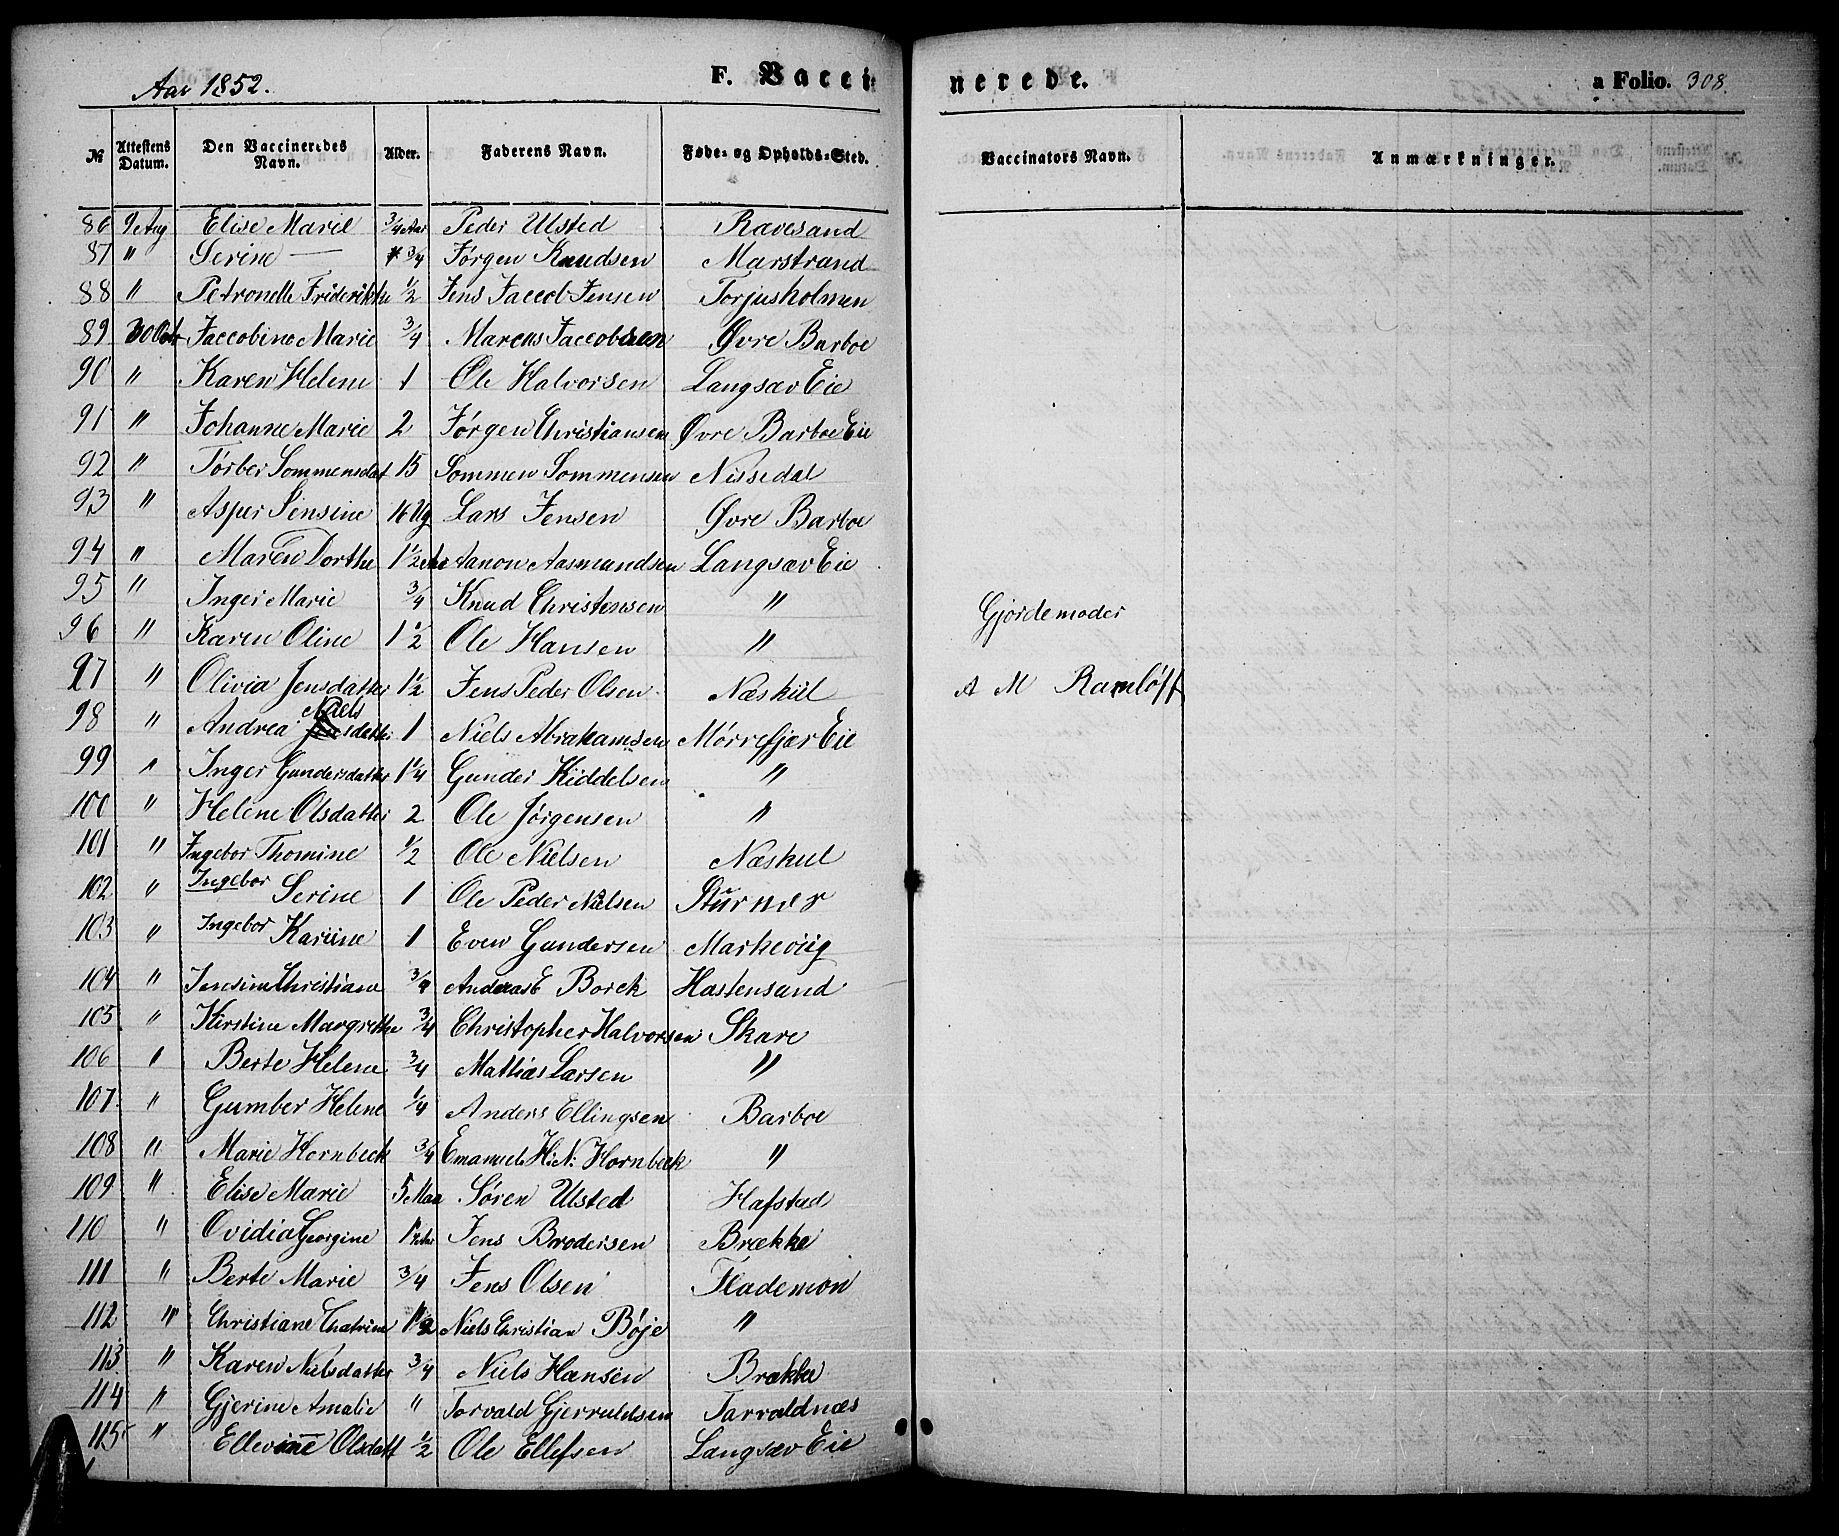 Aar 1852. F. Vaccinerede. a Folio. 308.
№ Attestens Datum. Den Vaccineredes Navn. Alder. Faderens Navn. Føde- og Opholds-Sted. Vaccinators Navn. Anmærkninger.
86 9 Aug Elise Marie 3/4 Aar Peder Ulsted Ravesand
87 " Serine — 3/4 Jørgen Knudsen Marstrand
88 " Petronelle Friderikke 1/2 Jens Jaccob Jensen Torjusholmen
89 30 Oct Jaccobine Marie 3/4 Marcus Jaccobsen Øvre Barboe
90 " Karen Helene 1 Ole Halvorsen Langsæv Eie
91 " Johanne Marie 2 Jørgen Christiansen Øvre Barboe Eie
92 " Tørber Sommensdat 15 Sommen Sommensen Nissedal
93 " Asper Sensine 16 Ug Lars Jensen Øvre Barboe
94 " Maren Dorthe 1 1/2 Aar Aanon Aasmundsen Langsæv Eie
95 " Inger Marie 3/4 Knud Christensen " Gjordemoder
96 " Karen Oline 1 1/2 Ole Hansen "
97 " Olivia Jensdatter 1 1/2 Jens Peder Olsen Næskiil A M Ramløff
98 " Andrea Nielsdatter 1 Niels Abrahamsen Mørrefjær Eie
99 " Inger Gundersdatter 1 1/4 Gunder Kiddelsen "
100 " Helene Olsdatter 2 Ole Jørgensen "
101 " Ingebor Thomine 1/2 Ole Nielsen Næskiil
102 " Ingebor Serine 1 Ole Peder Nielsen Sturnær
103 " Ingebor Kariine 1 Even Gundersen Markeviig
104 " Jensine Christiane 3/4 Andreas E Borck Hastensund
105 " Kirstine Margrethe 3/4 Christopher Halvorsen Skare
106 " Berte Helene 3/4 Mathias Larsen "
107. " Gumber Helene 1/4 Anders Ellingsen Barboe
108 " Marie Hornbeck 3/4 Emanuel H: N: Hornbeck "
109 " Elise Marie 5 Maa Søren Ulsted Hafstad
110 " Ovidia Georgine Jens Brodersen Brække
111 " Berte Marie 3/4 Jens Olsen Flademon
112 " Christiane Chatrine 1 1/2 Niels Christian Bøje "
113 " Karen Nielsdatter 3/4 Niels Hansen Brække
114 " Gjerine Amalie " Torvald Gjerruldsen Tarvaldnæs
115 " Ellevine Olsdatt 1/2 Ole Ellefsen Langsæv Eie